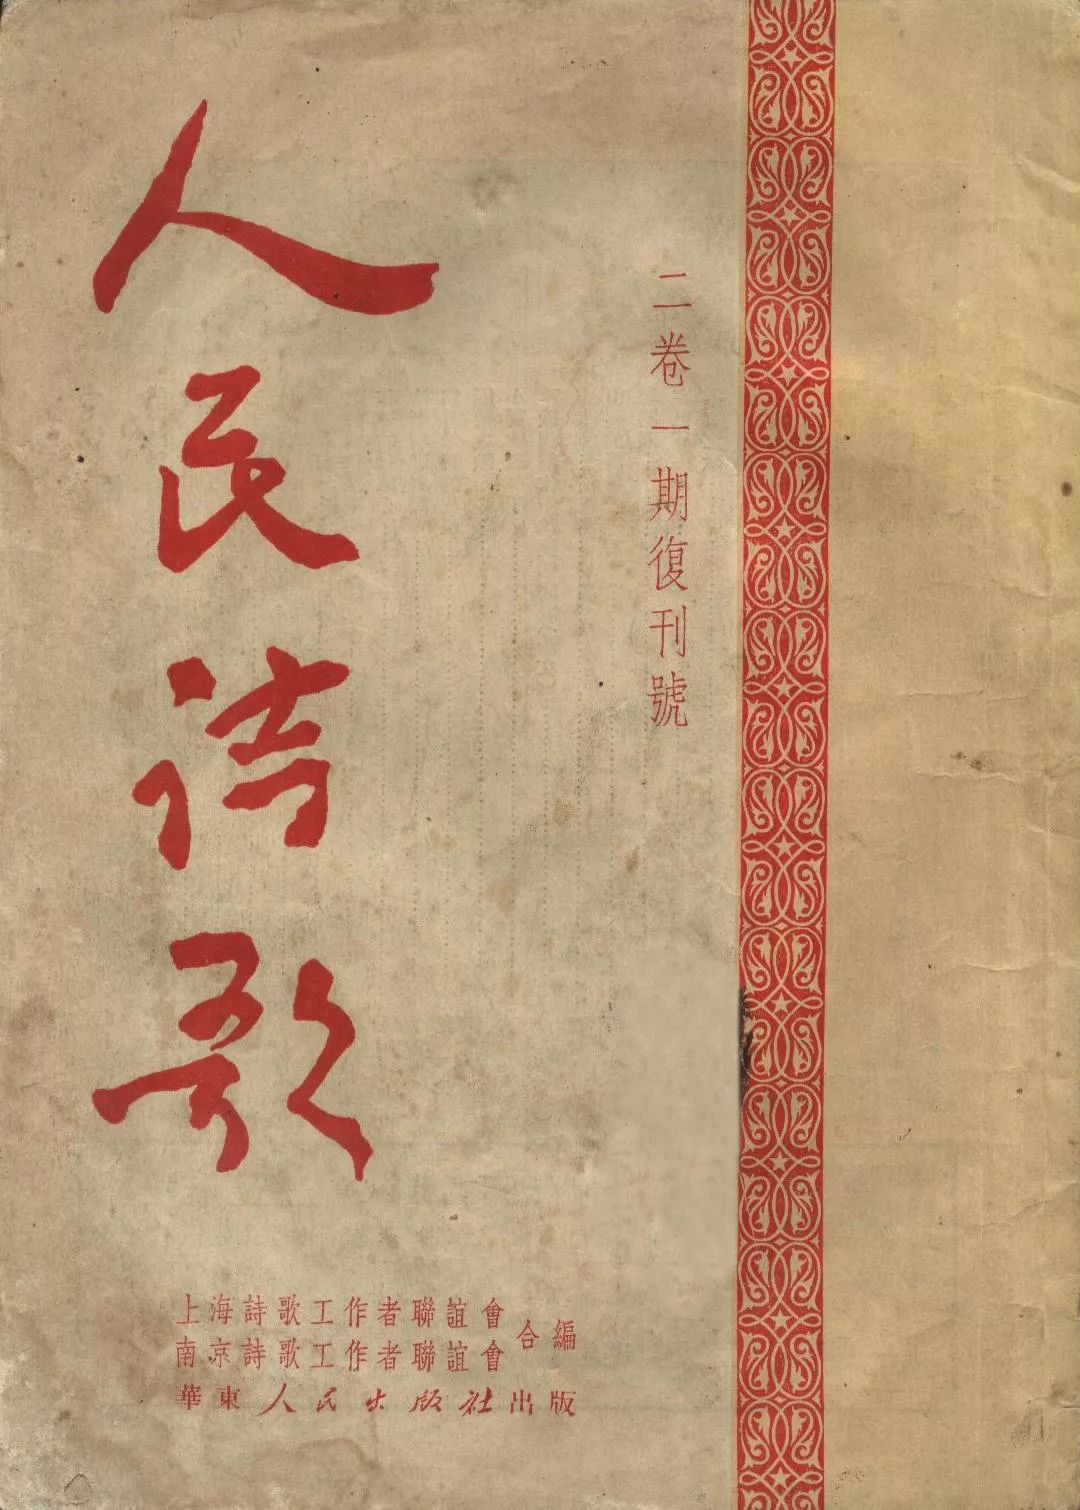 人民詩歌
二卷一期復刊號
上海詩歌工作者聯誼會
南京詩歌工作者聯誼會
合編
華東人民出版社出版